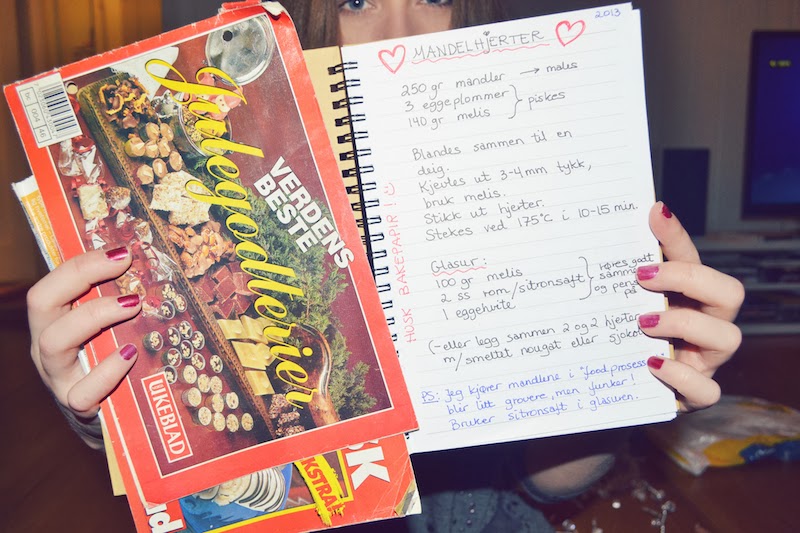 VERDENS
BESTE
Julegodterier
UKEBLAD
EKSTRA
2013
MANDELHJERTER
250 gr mandler → males
3 eggeplommer
140 gr. melis
} piskes
Blandes sammen til en
deig.
Kjevles ut 3-4 mm tykk,
bruk melis.
Stikk ut hjerter.
Stekes ved 175°C i 10-15 min.
HUSK BAKEPAPIR!
Glasur:
100 gr melis
2 ss rom/sitronsaft
1 eggehvite
} røres godt
sammen
og pensles
på
(- eller legg sammen 2 og 2 hjerter
m/smeltet nougat eller
PS: Jeg kjører mandlene i "food
blir litt grovere, men funker!
Bruker sitronsaft i glasuren.